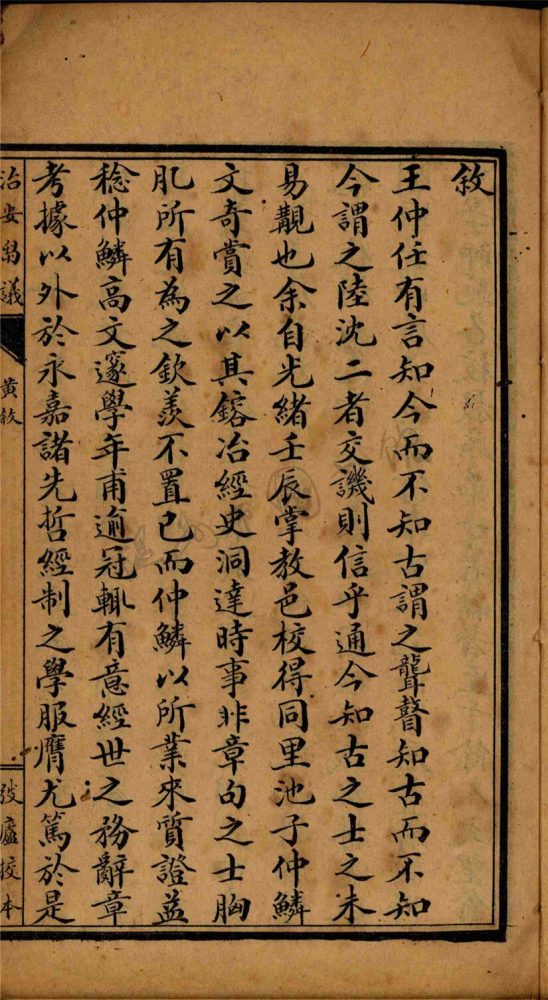 敘
王仲任有言知今而不知古謂之聾瞽知古而不知
今謂之陸沈二者交譏則信乎通今知古之士之未
易覯也余自光緒壬辰掌教邑校得同里池子仲鱗
文奇賞之以其鎔冶經史洞達時事非章句之士胸
肊所有為之欽羨不置已而仲鱗以所業來質證益
稔仲鱗高文邃學年甫逾冠輒有意經世之務辭章
考據以外於永嘉諸先哲經制之學服膺尤篤於是
治安芻議
黃敘
弢廬校本